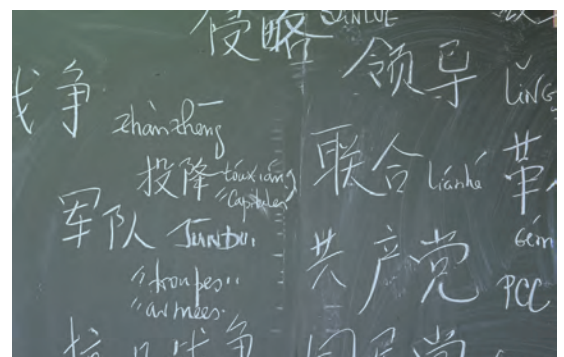 侵略 SANLUE
领导 LǐNG
战争 zhànzhēng
投降 tóuxiáng
"Capituler"
联合 Liánhé
革
Gém
军队 JUNDUI
"troupes"
"armées"
共产党
PCC
抗日战争
国民党